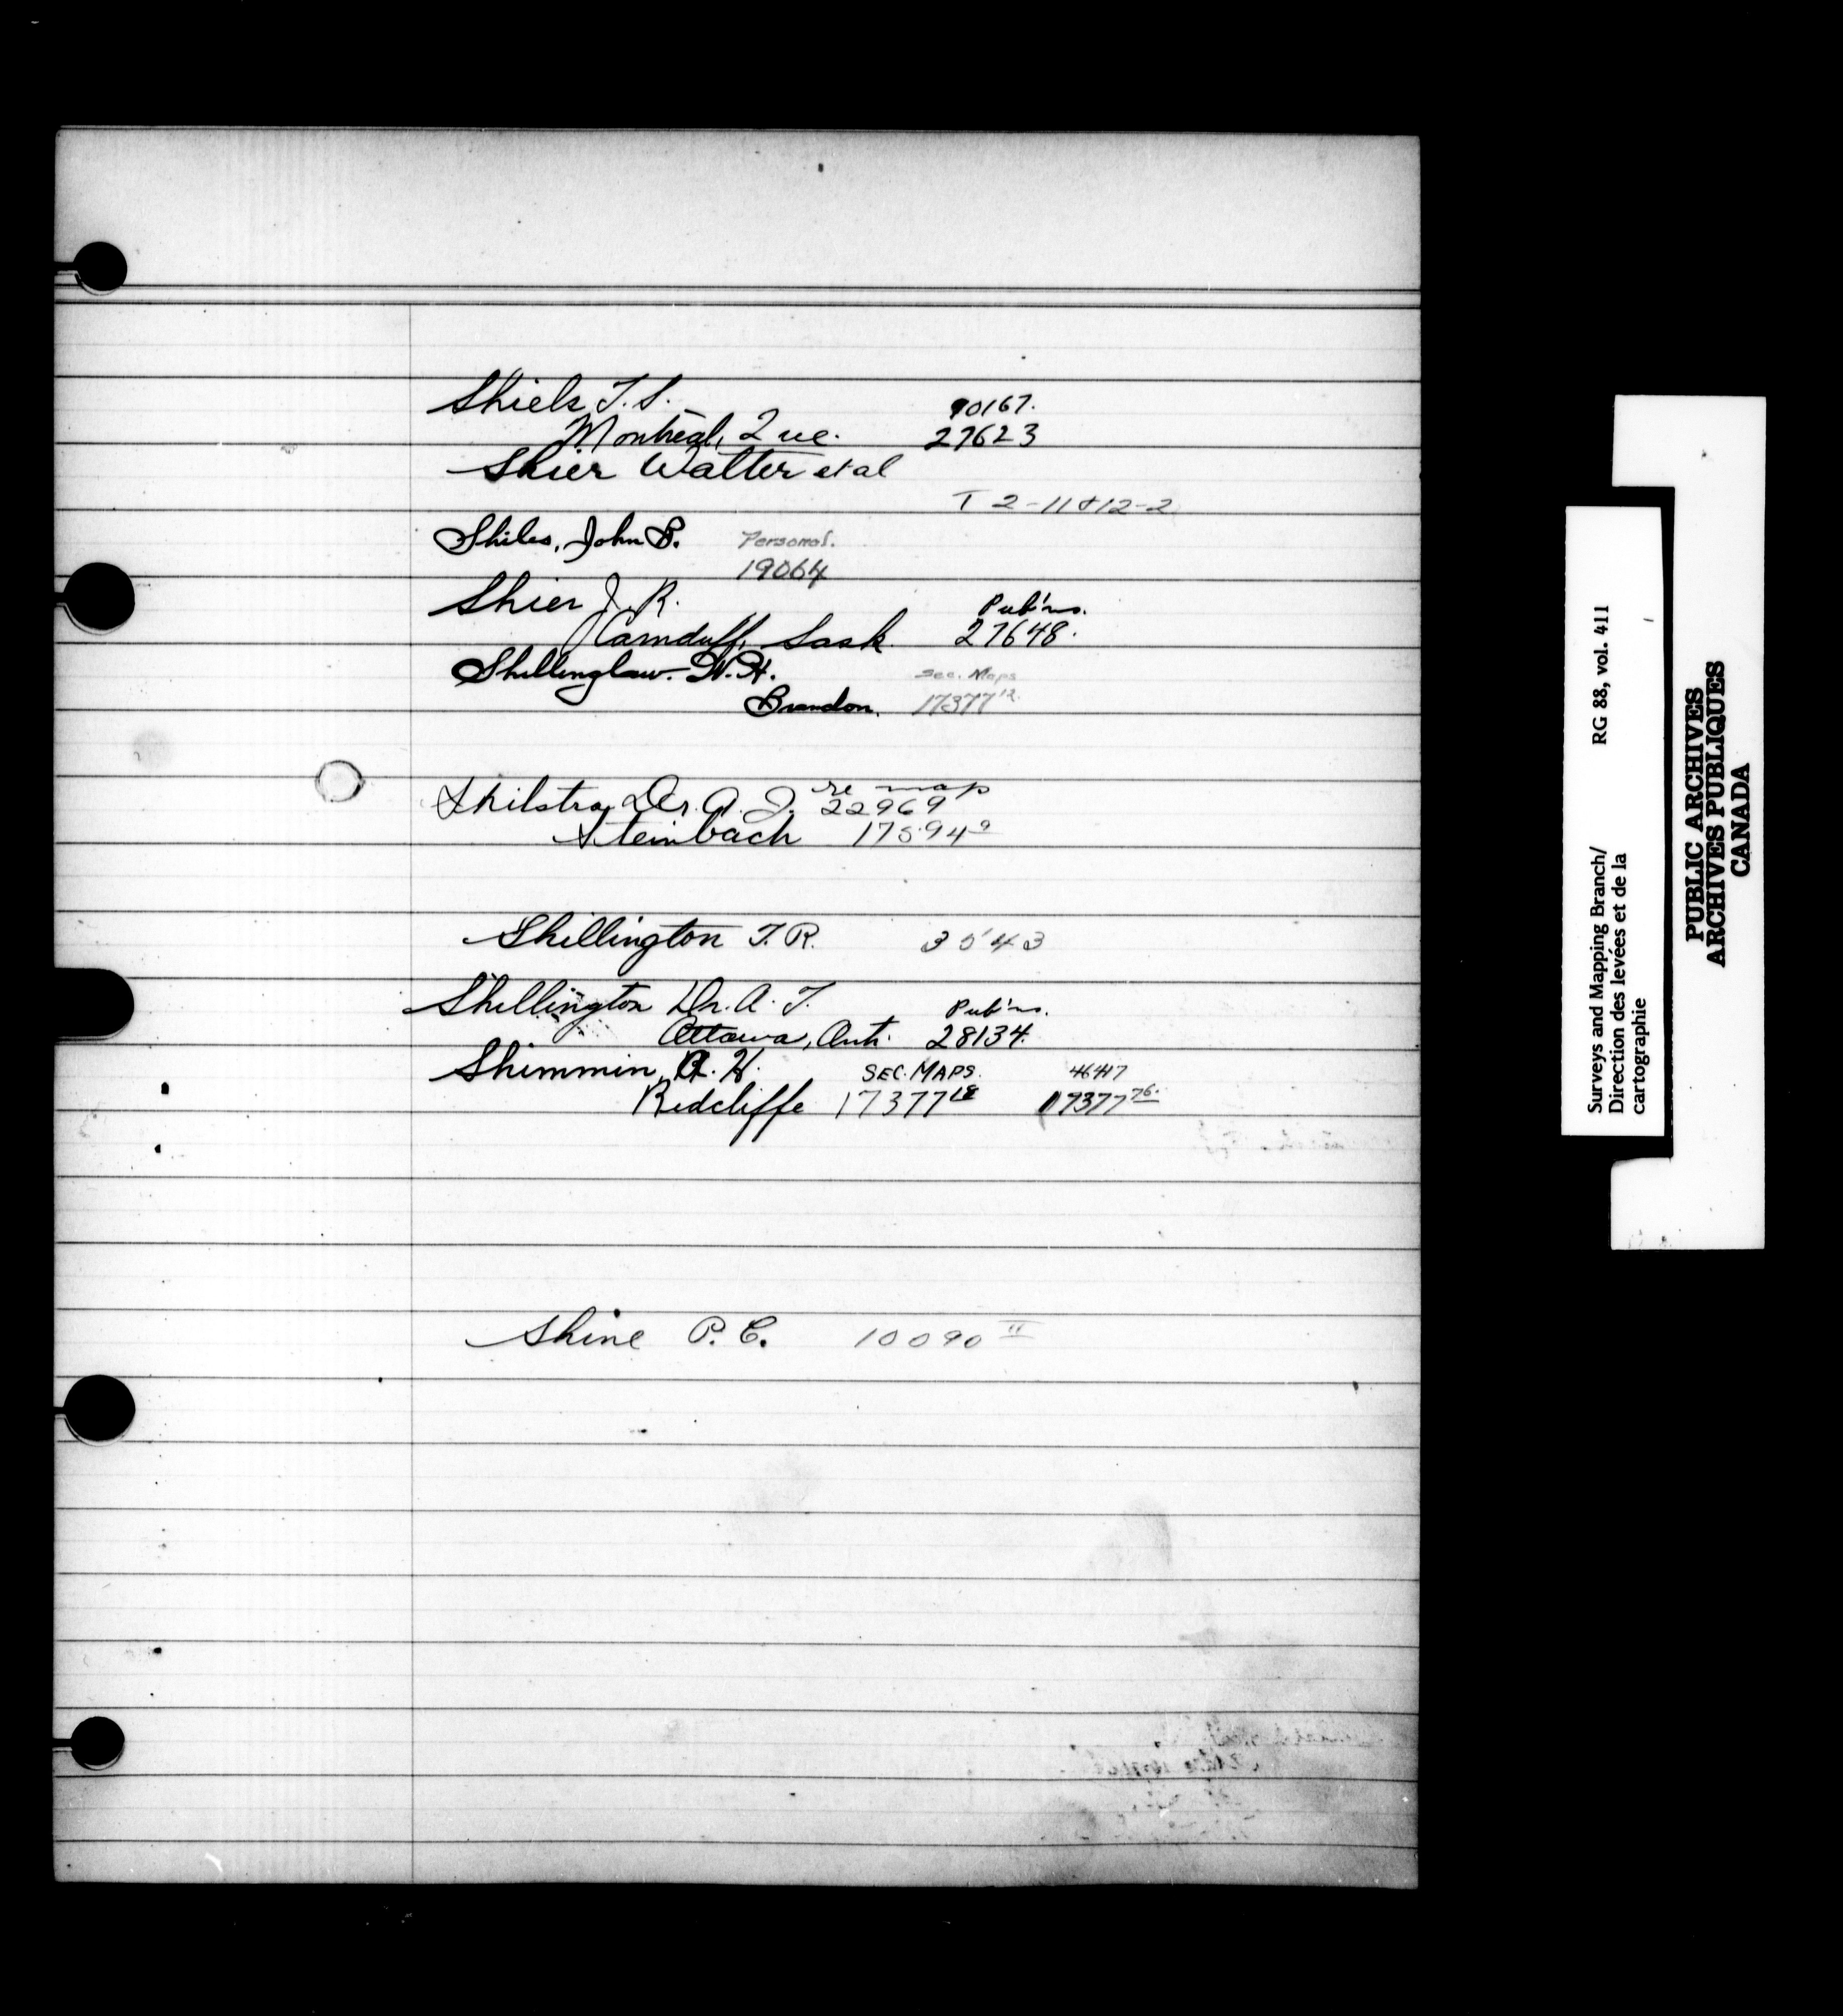 Shiels T. S. 90167.
Montreal, Que. 27623
Shier Walter et al
T 2-11&12-2
Shiles, John B. Personal.
19064
Shier J. R. Pub'ns.
Carnduff, Sask. 27648.
Shillinglaw. W. H. Sec. Maps
Brandon. 17377 12.
Shilstra Dr. A. J. re map 22969
Steinbach 17594 9
Shillington T. R. 3543
Shillington Dr. A. T. Pub'ns.
Ottawa, Ont. 28134.
Shimmin, R. H. SEC. MAPS. 4647
Redcliffe 17377 18 17377 76.
Shine P. C. 10090 II
Surveys and Mapping Branch/ RG 88, vol. 411
Direction des levées et de la
cartographie
PUBLIC ARCHIVES
ARCHIVES PUBLIQUES
CANADA